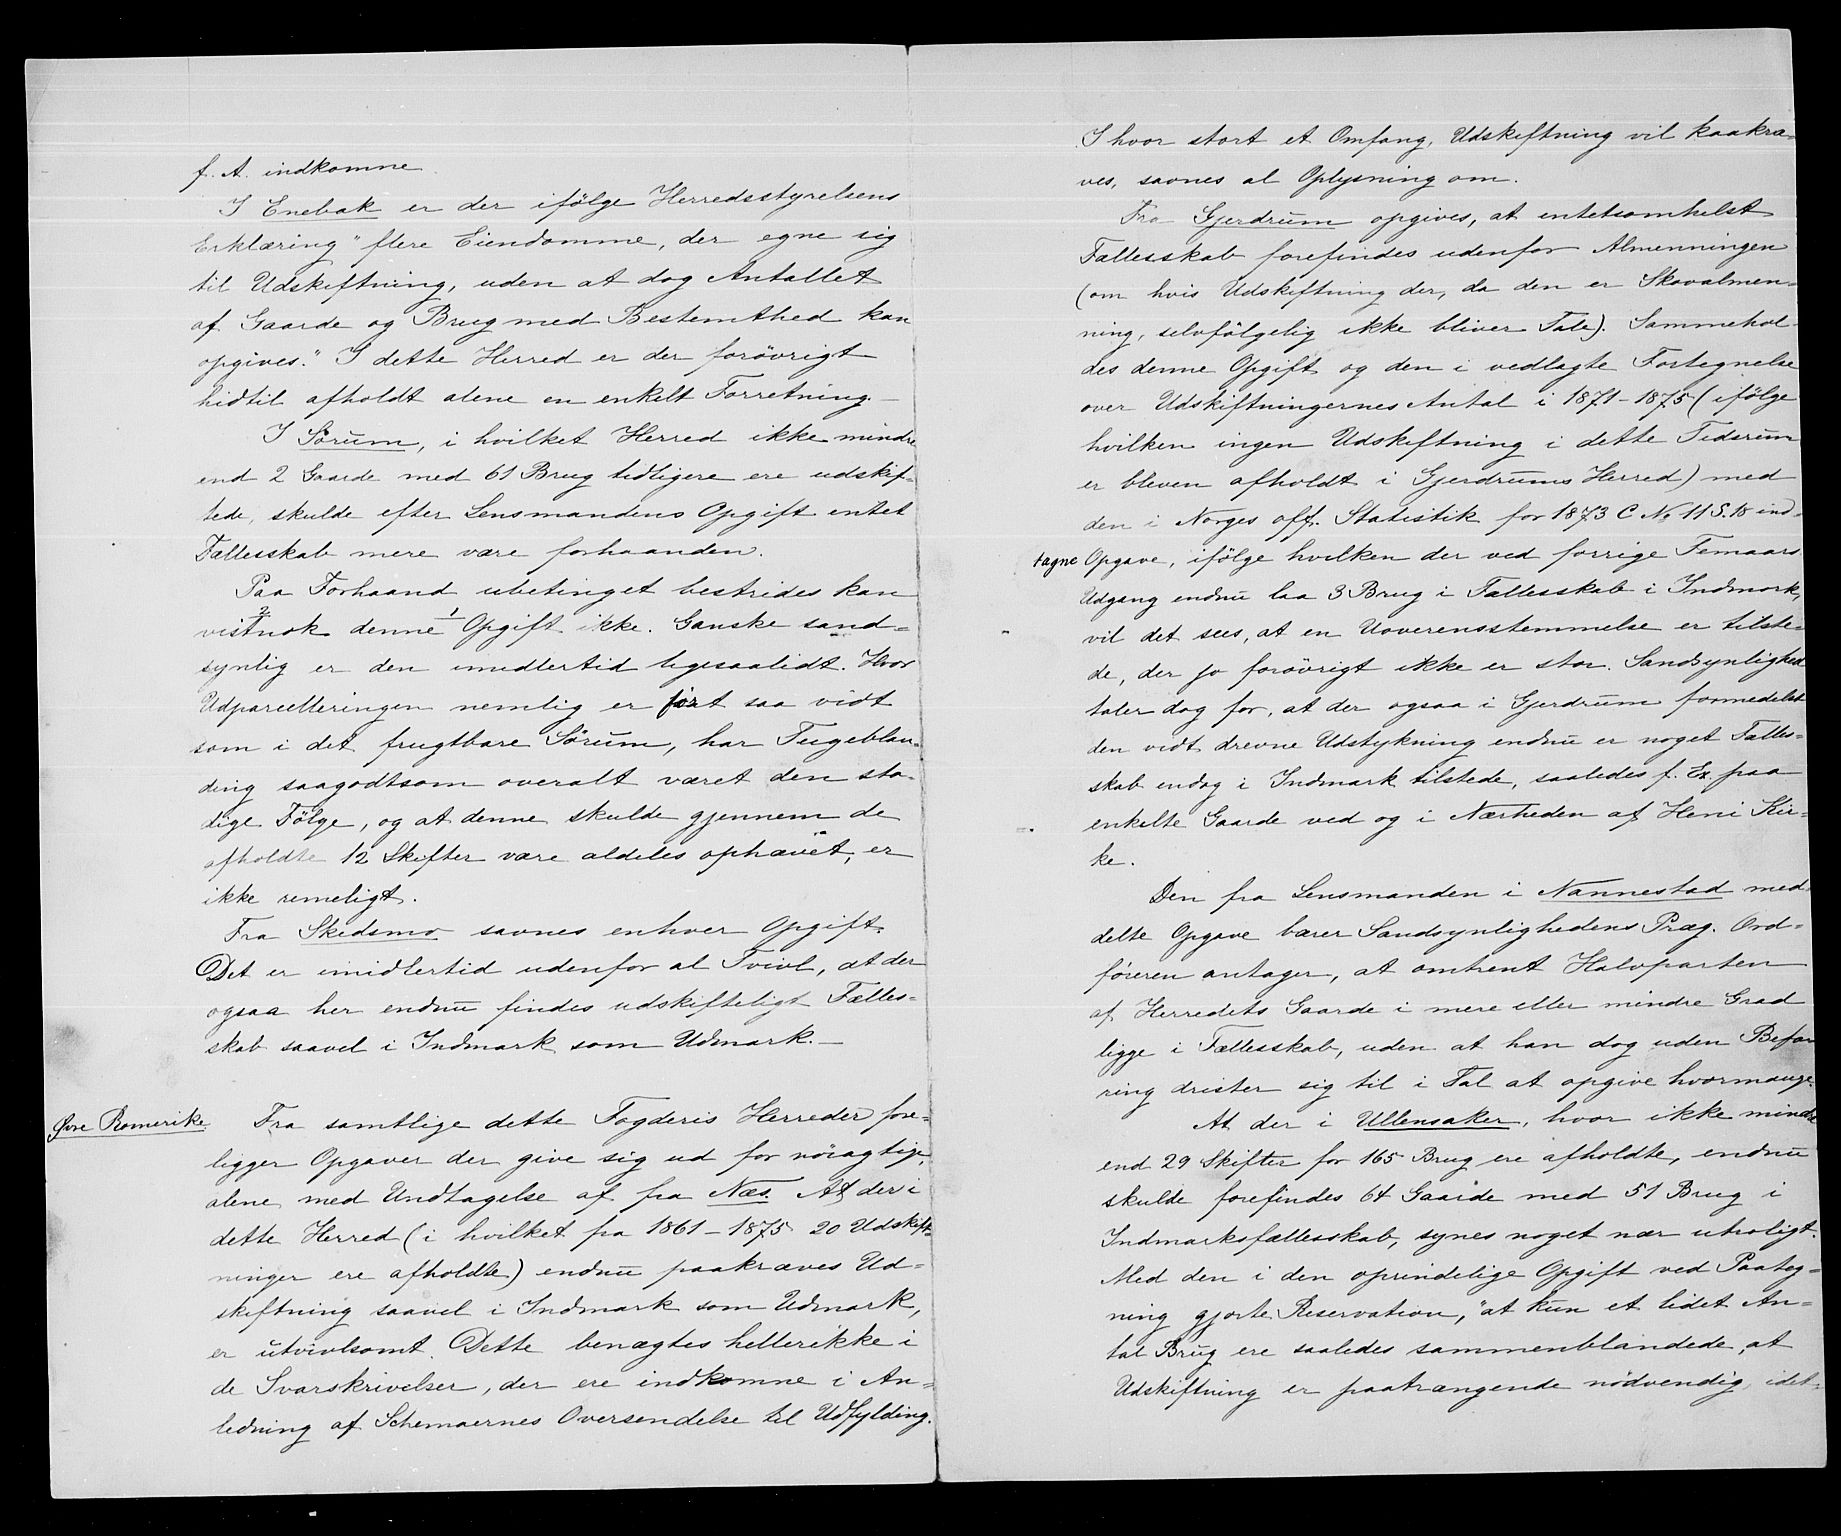 f. A. indkomne.
I Enebak er der ifölge Herredsstyrelsens
Erklæring "flere Eiendomme, der egne sig
til Udskiftning, uden at dog Antallet
af Gaarde og Brug med Bestemthed kan
opgives." I dette Herred er der forövrigt
hidtil afholdt alene en enkelt Forretning.—
I Sörum, i hvilket Herred ikke mindre
end 2 Gaarde med 61 Brug tidligere ere udskif-
tede, skulde efter Lensmandens Opgift intet
Fællesskab mere være forhaanden.
Paa Forhaand ubetinget bestrides kan
2 1
vistnok denne Opgift ikke. Ganske sand=
synlig er den imidlertid ligesaalidt. Hvor
Udparcelleringen nemlig er fört saa vidt
som i det frugtbare Sörum, har Teigeblan-
ding saagodtsom overalt været den sta-
dige Fölge, og at denne skulde gjennem de
afholdte 12 Skifter være aldeles ophævet, er
ikke rimeligt.
Fra Skedsmo savnes enhver Opgift.
Det er imidlertid udenfor al Tvivl, at der
ogsaa her endnu findes udskifteligt Fælles=
skab saavel i Indmark som Udmark.—
Øvre Romerike. Fra samtlige dette Fogderis Herreder fore-
ligger Opgaver der give sig ud for nöiagtige,
alene med Undtagelse af fra Næs. At der i
dette Herred (i hvilket fra 1861–1875 20 Udskift-
ninger ere afholdte) endnu paakræves Ud=
skiftning saavel i Indmark som Udmark,
er utvivlsomt. Dette benægtes hellerikke i
de Svarskrivelser, der ere indkomne i An=
ledning af Schemaernes Oversendelse til Udfylding.
I hvor stort et Omfang, Udskiftning vil kaakræ-
ves, savnes al Oplysning om.
Fra Gjerdrum opgives, at intetsomhelst
Fællesskab forefindes udenfor Almenningen
(om hvis Udskiftning der, da den er Skovalmen-
ning, selvfölgelig ikke bliver Tale). Sammehol-
des denne Opgift og den i vedlagte Fortegnelse
over Udskiftningernes Antal i 1871–1875 (ifölge
hvilken ingen Udskiftning i dette Tidsrum
er bleven afholdt i Gjerdrums Herred) med
den i Norges off. Statistik for 1873 C No 11 S. 18 ind-
tagne Opgave, ifölge hvilken der ved forrige Femaars
Udgang endnu laa 3 Brug i Fællesskab i Indmark,
vil det sees, at en Uoverensstemmelse er tilste-
de, der jo forövrigt ikke er stor. Sandsynlighed
taler dog for, at der ogsaa i Gjerdrum formedelst
den vidt drevne Udstykning endnu er noget Fælles=
skab endog i Indmark tilstede, saaledes f. Ex. paa
enkelte Gaarde ved og i Nærheden af Heni Kir-
ke.
Den fra Lensmanden i Nannestad med-
delte Opgave bærer Sandsynlighedens Præg. Ord=
föreren antager, at omtrent Halvparten
af Herredets Gaarde i mere eller mindre Grad
ligge i Fællesskab, uden at han dog uden Befa-
ring drister sig til i Tal at opgive hvormange.
At der i Ullensaker, hvor ikke mindre
end 29 Skifter for 165 Brug ere afholdte, endnu
skulde forefindes 64 Gaarde med 51 Brug i
Indmarksfællesskab, synes noget nær utroligt.
Med den i den oprindelige Opgift ved Paateg=
ning gjorte Reservation, "at kun et lidet An=
tal Brug ere saaledes sammenblandede, at
Udskiftning er paatrængende nödvendig, idet-